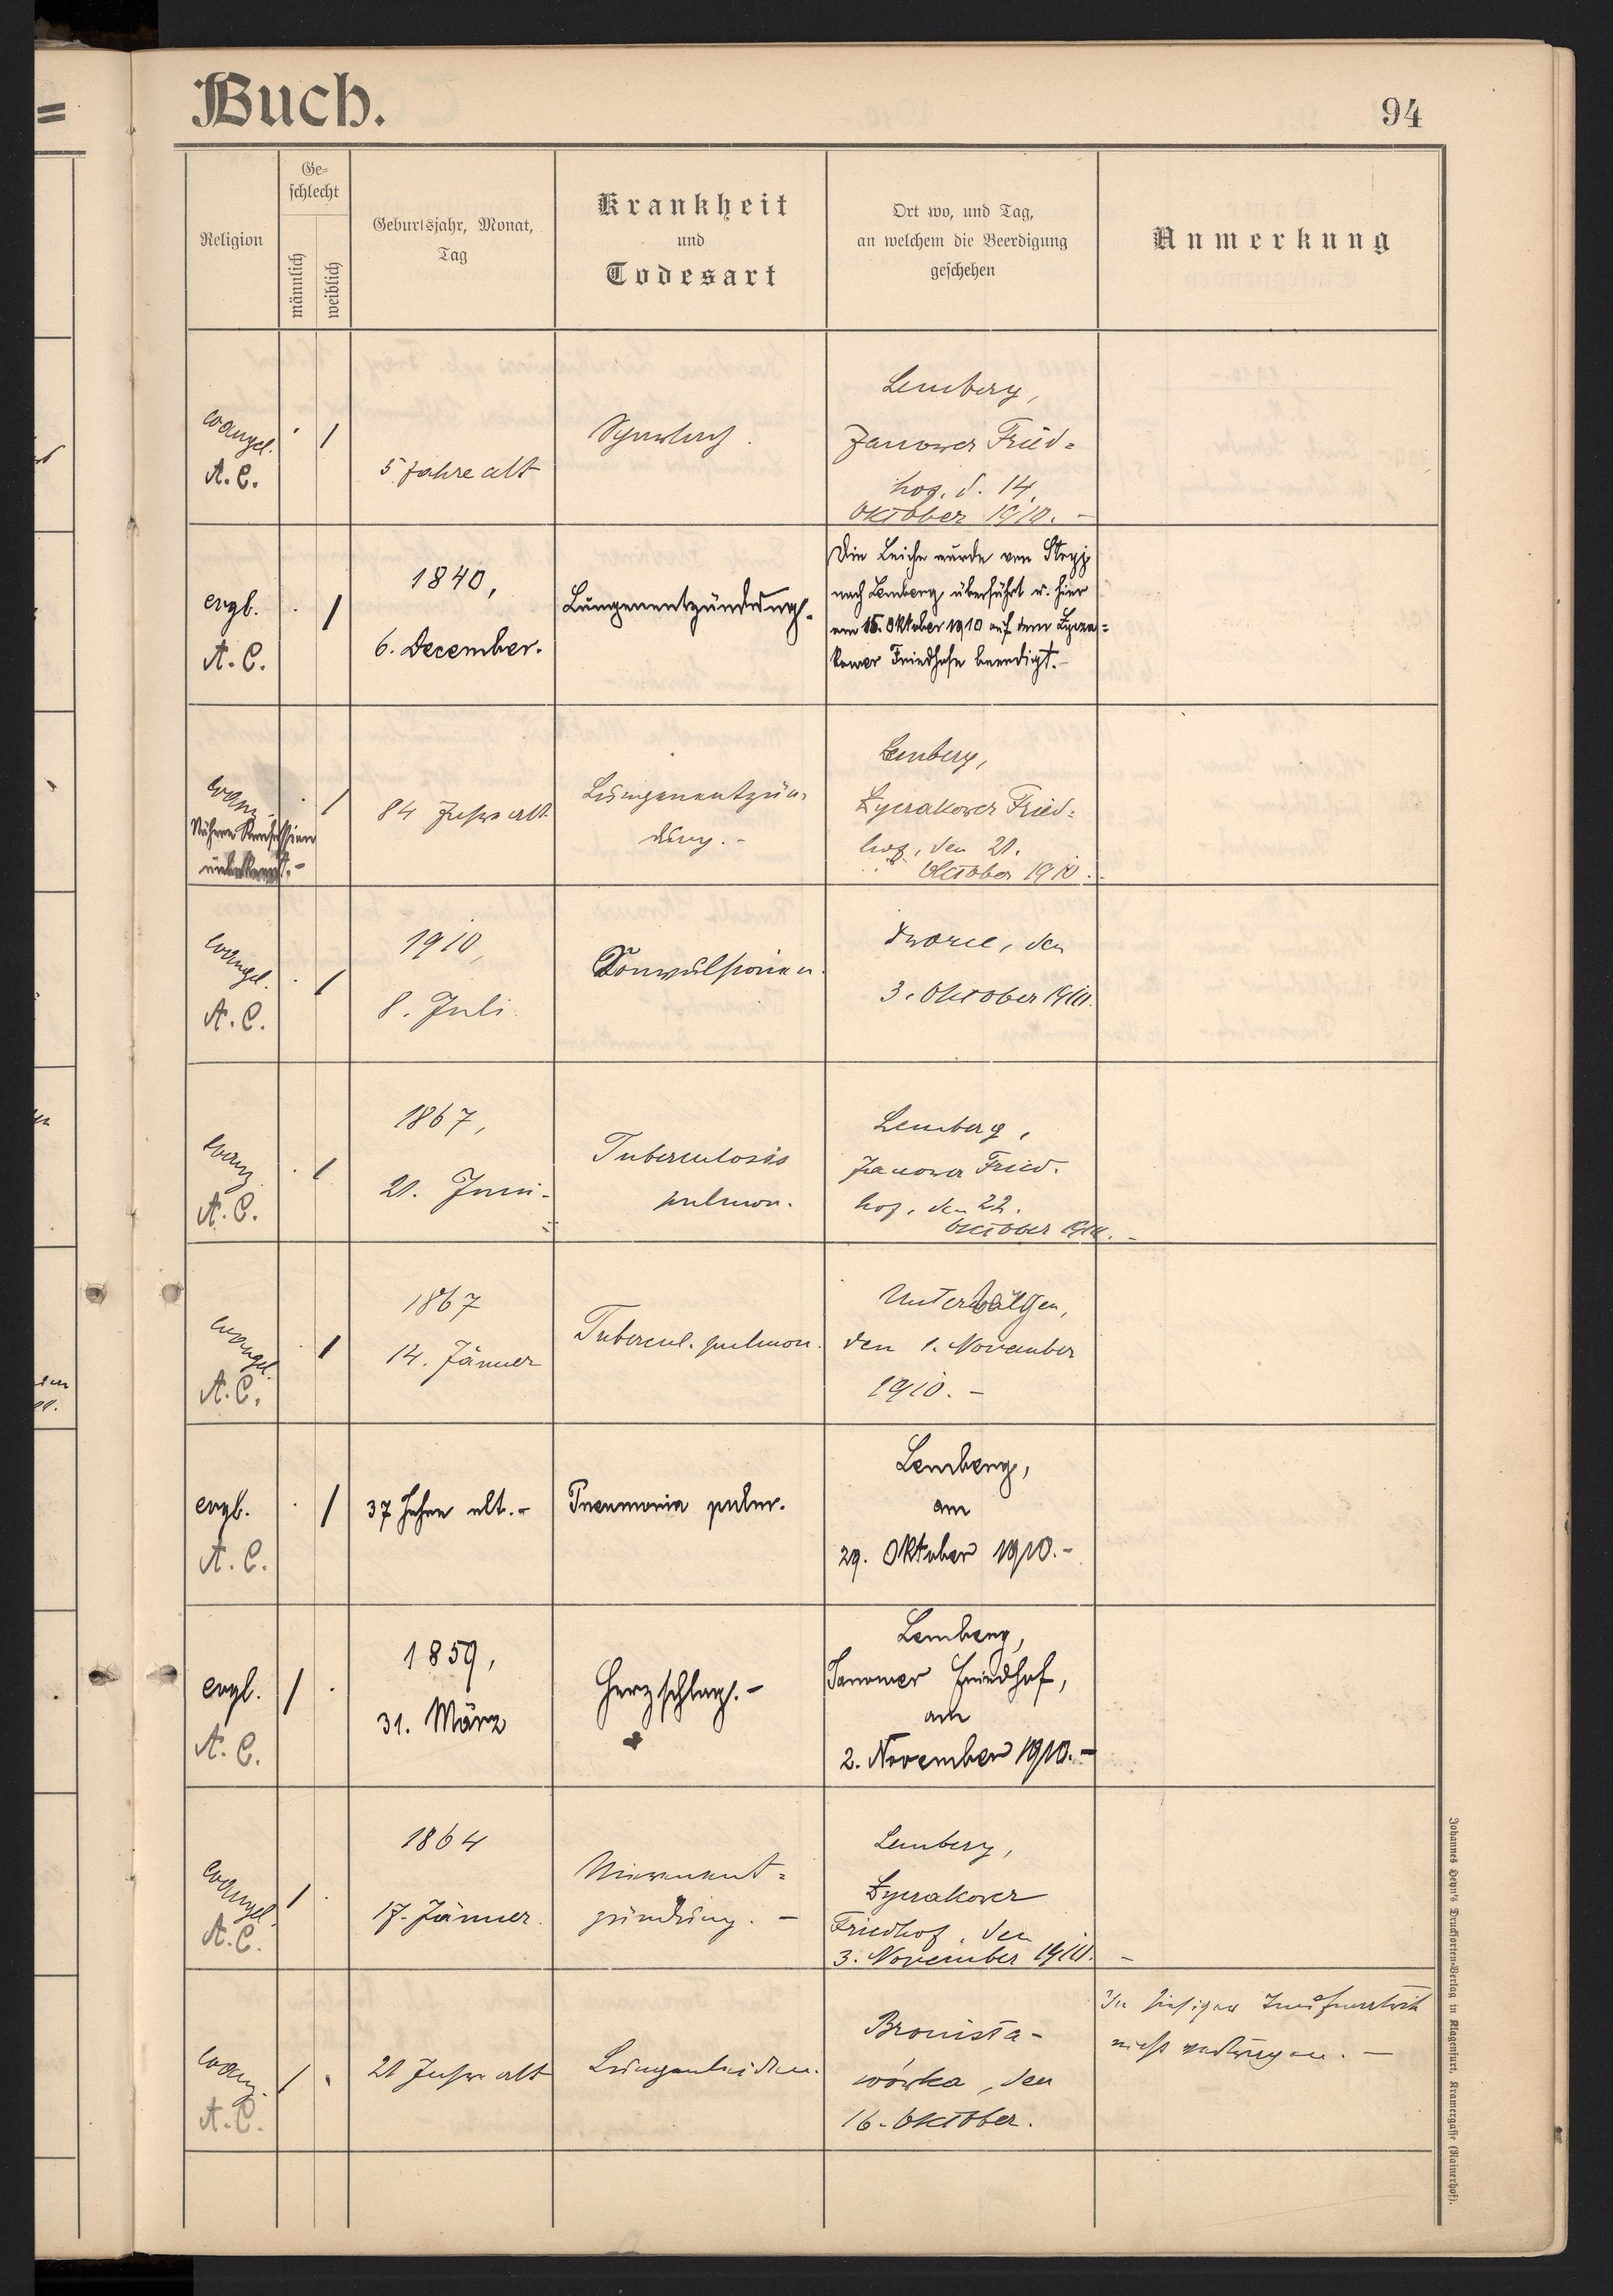 =
Buch.
94
Religion
Ge-
schlecht
männlich
weiblich
Geburtsjahr, Monat,
Tag
Krankheit
und
Todesart
Ort wo, und Tag,
an welchem die Beerdigung
geschehen
Anmerkung
evangel.
A. C.
/
5 Jahre alt
Lemberg,
Janower Fried=
hof, d. 14.
Oktober 1910. -
evgl.
A. C.
/
1840,
6. December.
Lungenentzündung.
Die Leiche wurde von Stryj
nach Lemberg überführt u. hier
am 15. Oktober 1910 auf dem Łycza=
kower Friedhofe beerdigt. -
evang.
Nähere Konfession
unbekannt. -
/
84 Jahre alt
Lungenentzün-
dung. -
Lemberg,
Łyczakower Fried=
hof, den 21.
Oktober 1910. -
evangel.
A. C.
/
1910,
8. Juli.
Konvulsionen.
Dworce, den
3. Oktober 1910.
evang.
A. C.
/
1867,
21. Juni.
Tuberculosis
pulmon.
Lemberg,
Janower Fried-
hof, den 22.
Oktober 1910. -
evangel.
A. C.
/
1867
14. Jänner
Tubercul. pulmon.
Unterwalden,
den 1. November
1910. -
evgl.
A. C.
/
37 Jahre alt. -
Pneumonia pulm.
Lemberg,
am
29. Oktober 1910. -
evgl.
A. C.
/
1859,
31. März
Herzschlag. -
Lemberg,
Janower Friedhof,
am
2. November 1910. -
evangel.
A. C.
/
1864
17. Jänner.
Nierenent=
zündung. -
Lemberg,
Łyczakower
Friedhof, den
3. November 1910. -
evang.
A. C.
/
21 Jahre alt
Lungenleiden.
Bronisła-
wówka, den
16. Oktober.
In hiesiger
nicht
Johannes Heyn's Drucksorten-Verlag in Klagenfurt, Kramergasse (Rainerhof).